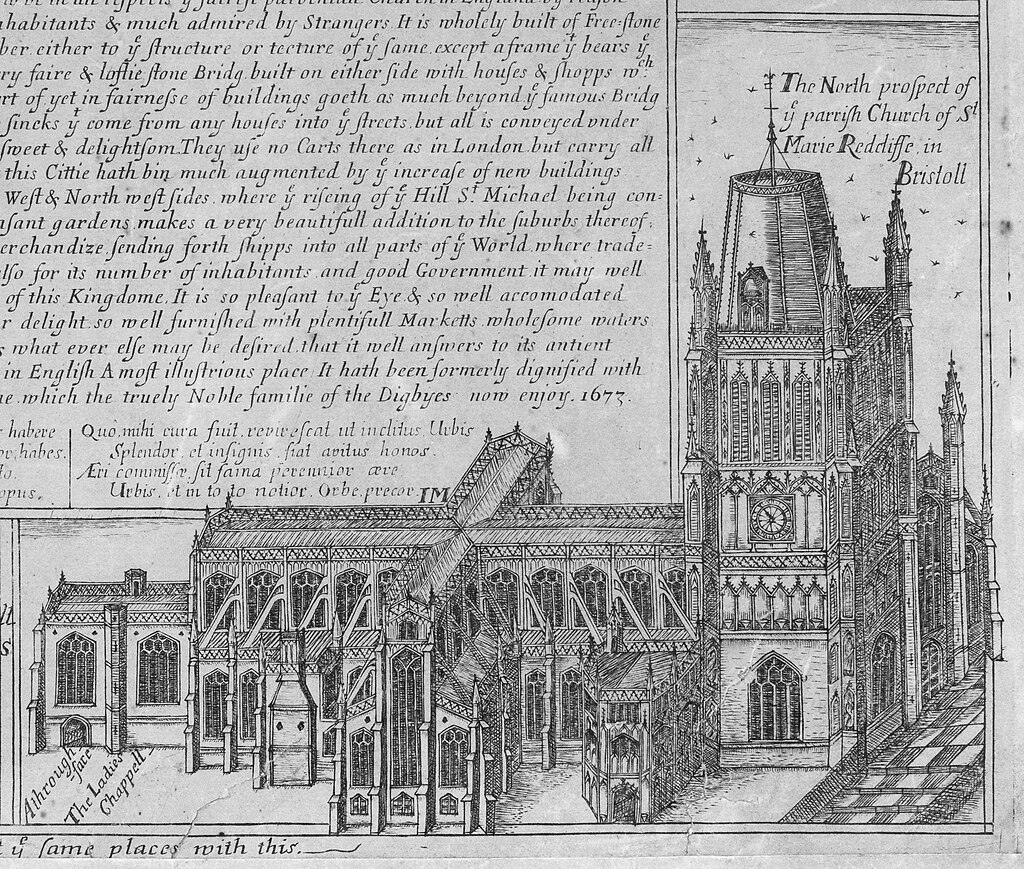 in all reſpects yᵉ faireſt parochial Church in England by reaſon
nhabitants & much admired by Strangers. It is wholely built of Free-ſtone
ber either to yᵉ ſtructure or tecture of yᵉ ſame, except a frame yᵗ bears yᵉ
ry faire & loftie ſtone Bridg built on either ſide with houſes & ſhopps wᶜʰ
rt of yet in fairneſſe of buildings goeth as much beyond yᵉ famous Bridg
ſincks yᵗ come from any houſes into yᵉ ſtreets, but all is conveyed vnder
ſweet & delightſom. They uſe no Carts there as in London but carry all
this Cittie hath bin much augmented by yᵉ increaſe of new buildings
West & North weſt ſides, where yᵉ riſeing of yᵉ Hill Sᵗ Michael being con=
aſant gardens, makes a very beautifull addition to the ſuburbs thereof;
erchandize, ſending forth ſhipps into all parts of yᵉ World, where trade=
alſo for its number of inhabitants, and good Government it may well
of this Kingdome. It is ſo pleaſant to yᵉ Eye & ſo well accomodated
r delight, ſo well furniſhed with plentifull Marketts, wholeſome waters
s what ever elſe may be deſired, that it well anſwers to its antient
in Engliſh A moſt illuſtrious place. It hath been formerly dignified with
e, which the truely Noble familie of the Digbyes now enjoy. 1673.
habere
or, habes.
to.
opus.
Quò mihi cura fuit, revireſcat ut inclitus Urbis
Splendor, et inſignis, fiat avitus honos.
Æri commiſſæ, ſit fama perennior ære
Urbis, et in toto notior, Orbe, precor. IM
The North proſpect of
yᵉ parriſh Church of Sᵗ
Marie Redcliffe, in
Briſtoll
ll
s
A through fare
The Ladies Chappell
t yᵉ ſame places with this.